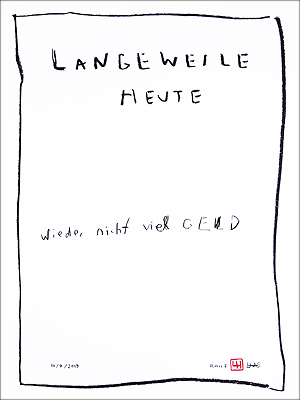 LANGEWEILE
HEUTE
wieder nicht viel GELD